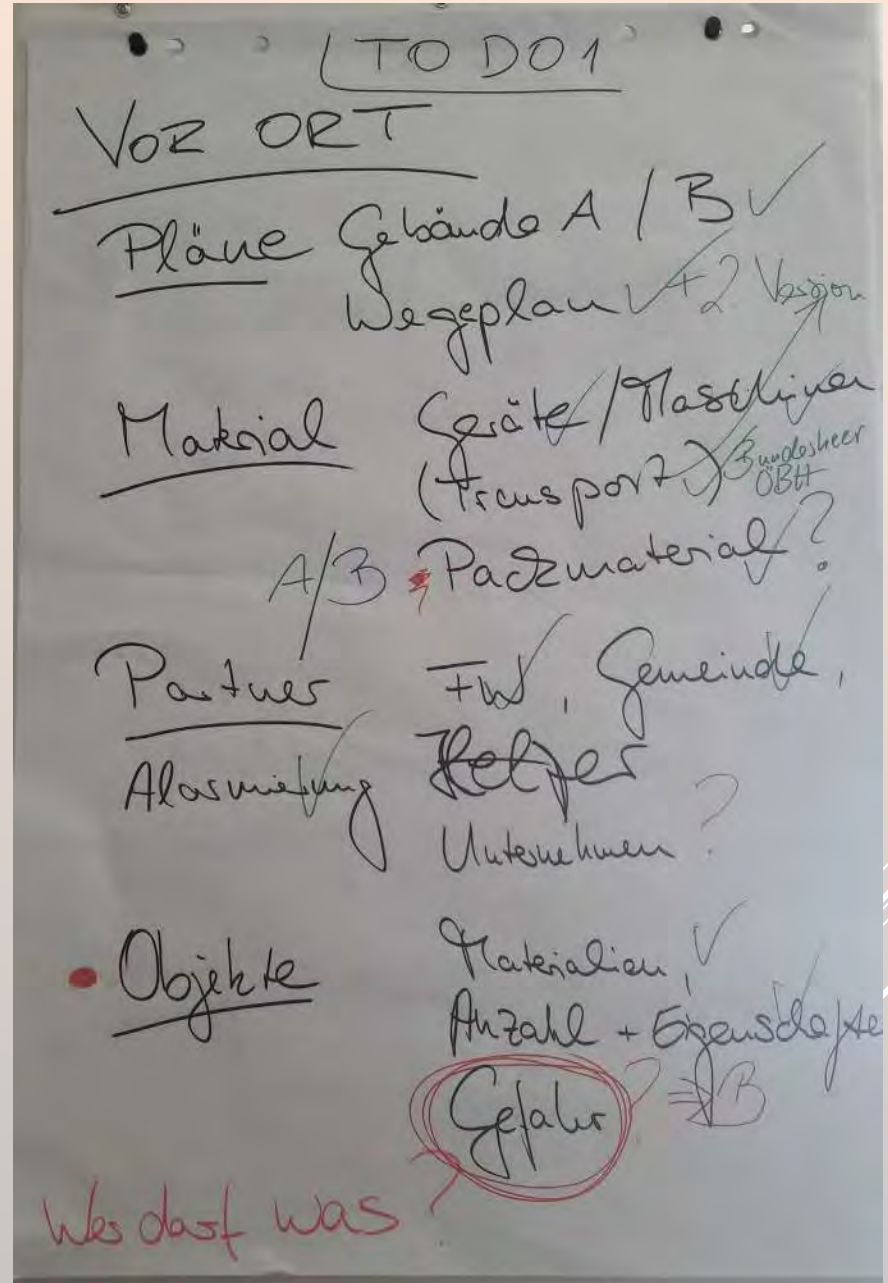 TO DO 1
VOR ORT
Pläne Gebäude A / B ✓
Wegeplan ✓ + 2. Version
Material Geräte / Maschinen
(Transport) ✓ Bundesheer
ÖBH
A/B Packmaterial ✓ ?
Partner FW ✓, Gemeinde ✓,
Alarmierung ✓ Helfer
Unternehmen ?
• Objekte Materialien, ✓
Anzahl + Eigenschafte
Gefahr ? ⇒ B
Wer darf was ?